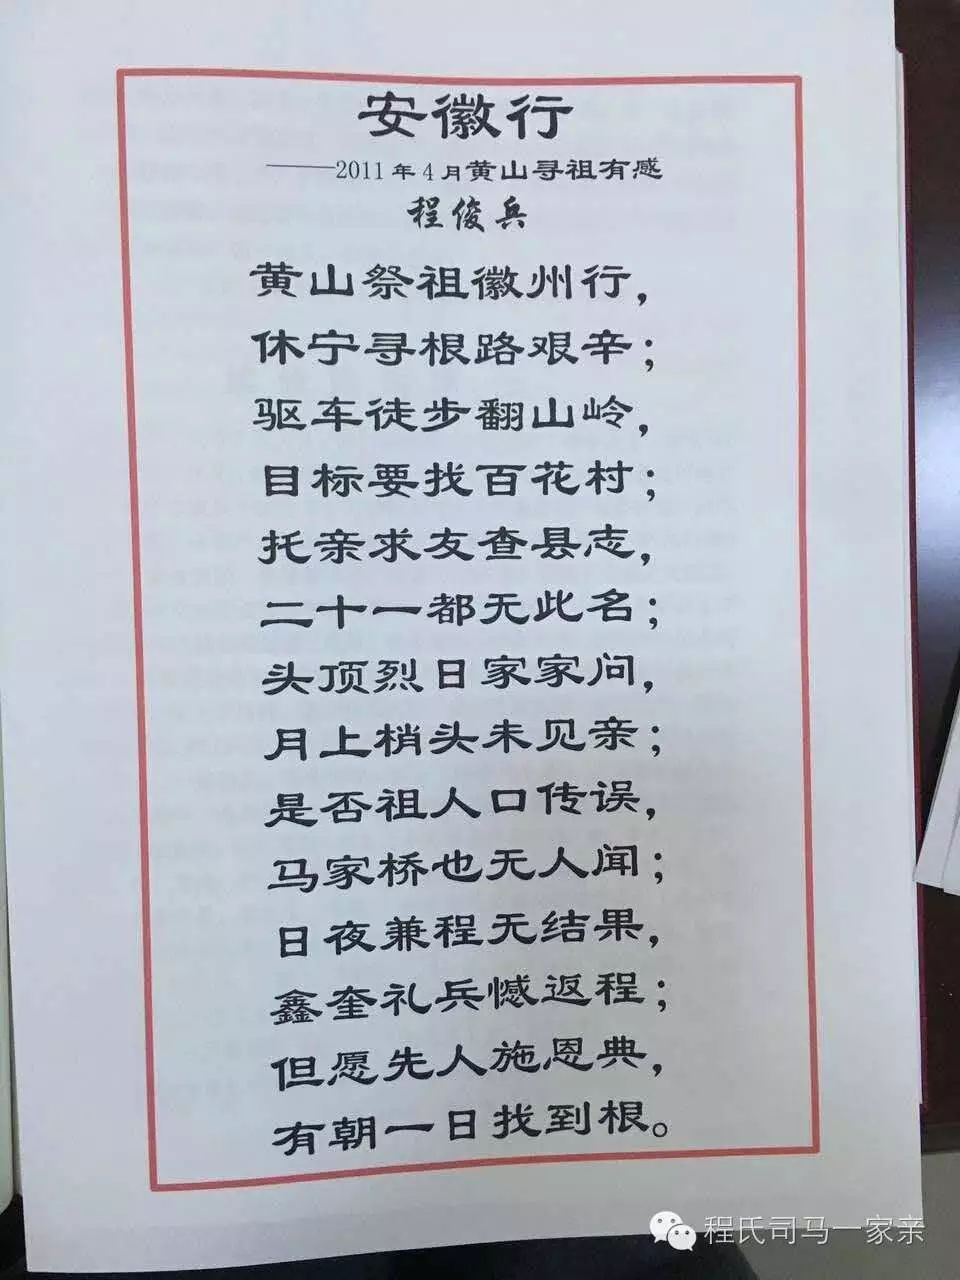 安徽行
——2011年4月黄山寻祖有感
程俊兵
黄山祭祖徽州行，
休宁寻根路艰辛；
驱车徒步翻山岭，
目标要找百花村；
托亲求友查县志，
二十一都无此名；
头顶烈日家家问，
月上梢头未见亲；
是否祖人口传误，
马家桥也无人闻；
日夜兼程无结果，
鑫奎礼兵憾返程；
但愿先人施恩典，
有朝一日找到根。
程氏司马一家亲